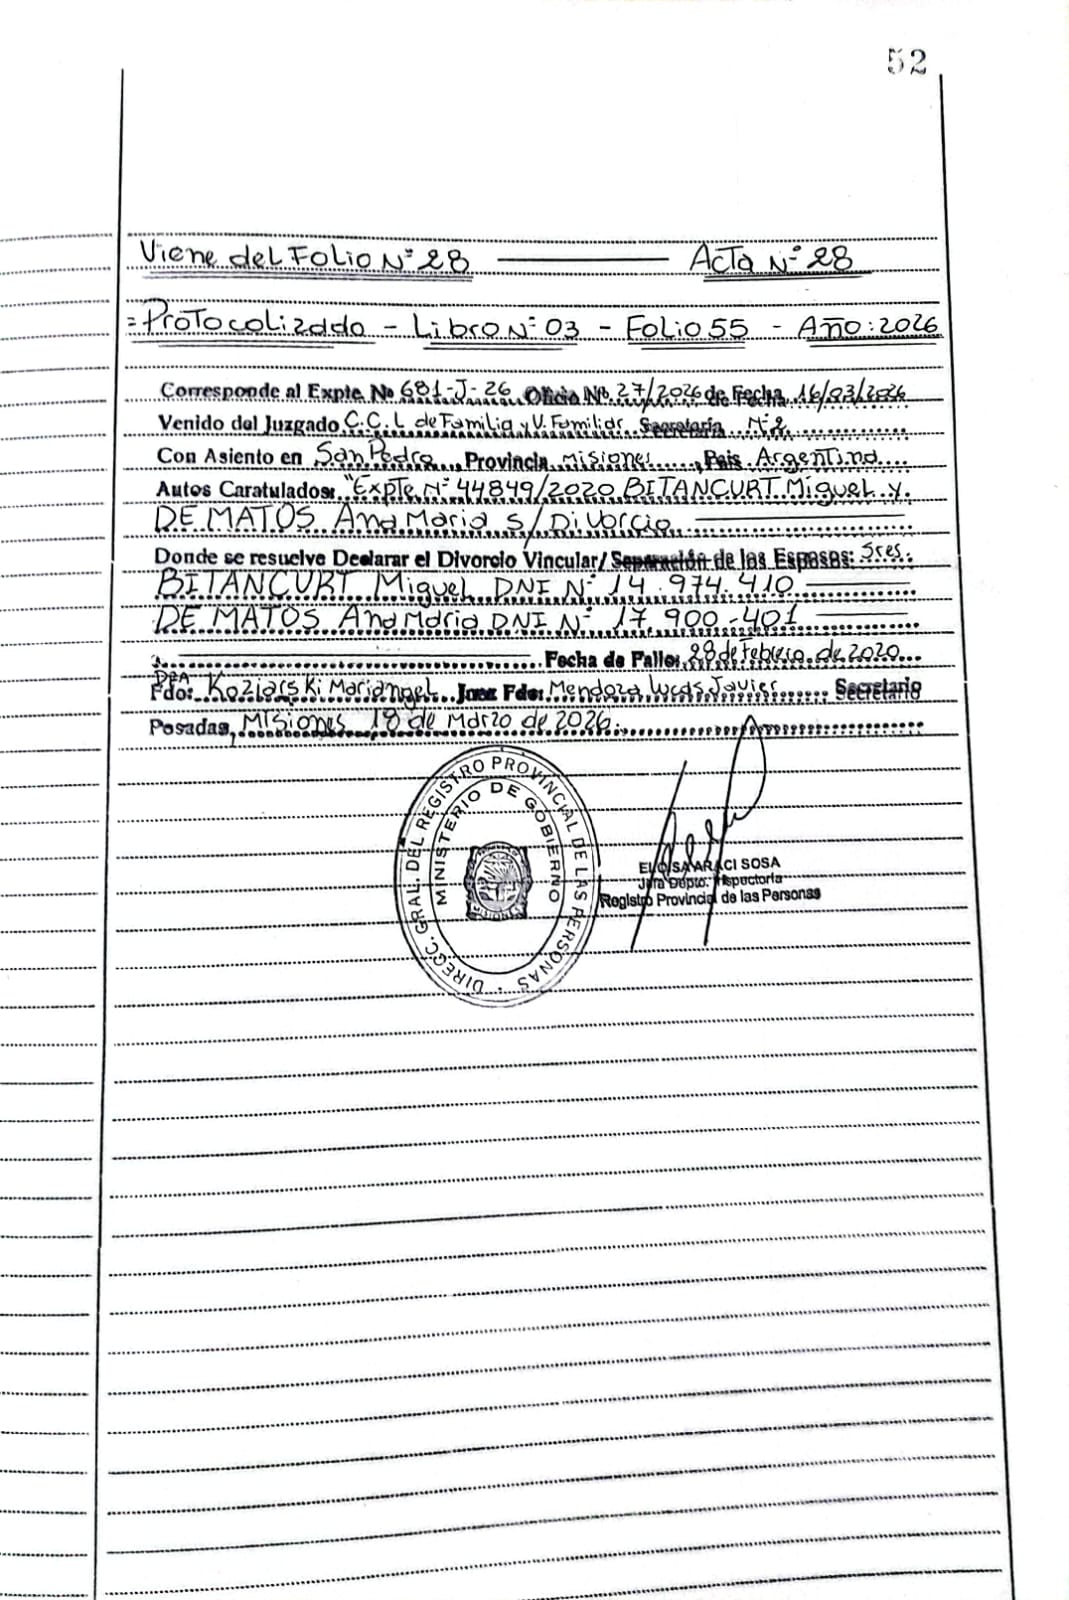 52
Viene del Folio N° 28 ——— Acta N° 28
=Protocolizado - Libro N° 03 - Folio 55 - Año: 2026
Corresponde al Expte. No 681-J-26 Oficio No. 27/2026 de Fecha 16/03/2026
Venido del Juzgado C.C.L de Familia y V. Familiar Secretaría N°2
Con Asiento en San Pedro Provincia Misiones Pais Argentina
Autos Caratulados: "Expte N° 44849/2020 BITANCURT Miguel y
DE MATOS Ana Maria s/ Divorcio
Donde se resuelve Declarar el Divorcio Vincular/ Separación de los Esposos: Sres.
BITANCURT Miguel DNI N° 14.974.410
DE MATOS Ana Maria DNI N° 17.900.401
Fecha de Fallo: 28 de Febrero de 2020
Fdo: DRA Koziarski Mariangel Juez Fdo: Mendoza Lucas Javier Secretario
Posadas, Misiones 18 de Marzo de 2026.
DIRECC. GRAL. DEL REGISTRO PROVINCIAL DE LAS PERSONAS
MINISTERIO DE GOBIERNO
MISIONES
ELOISA ARACI SOSA
Jefa Depto. Inspectoría
Registro Provincial de las Personas